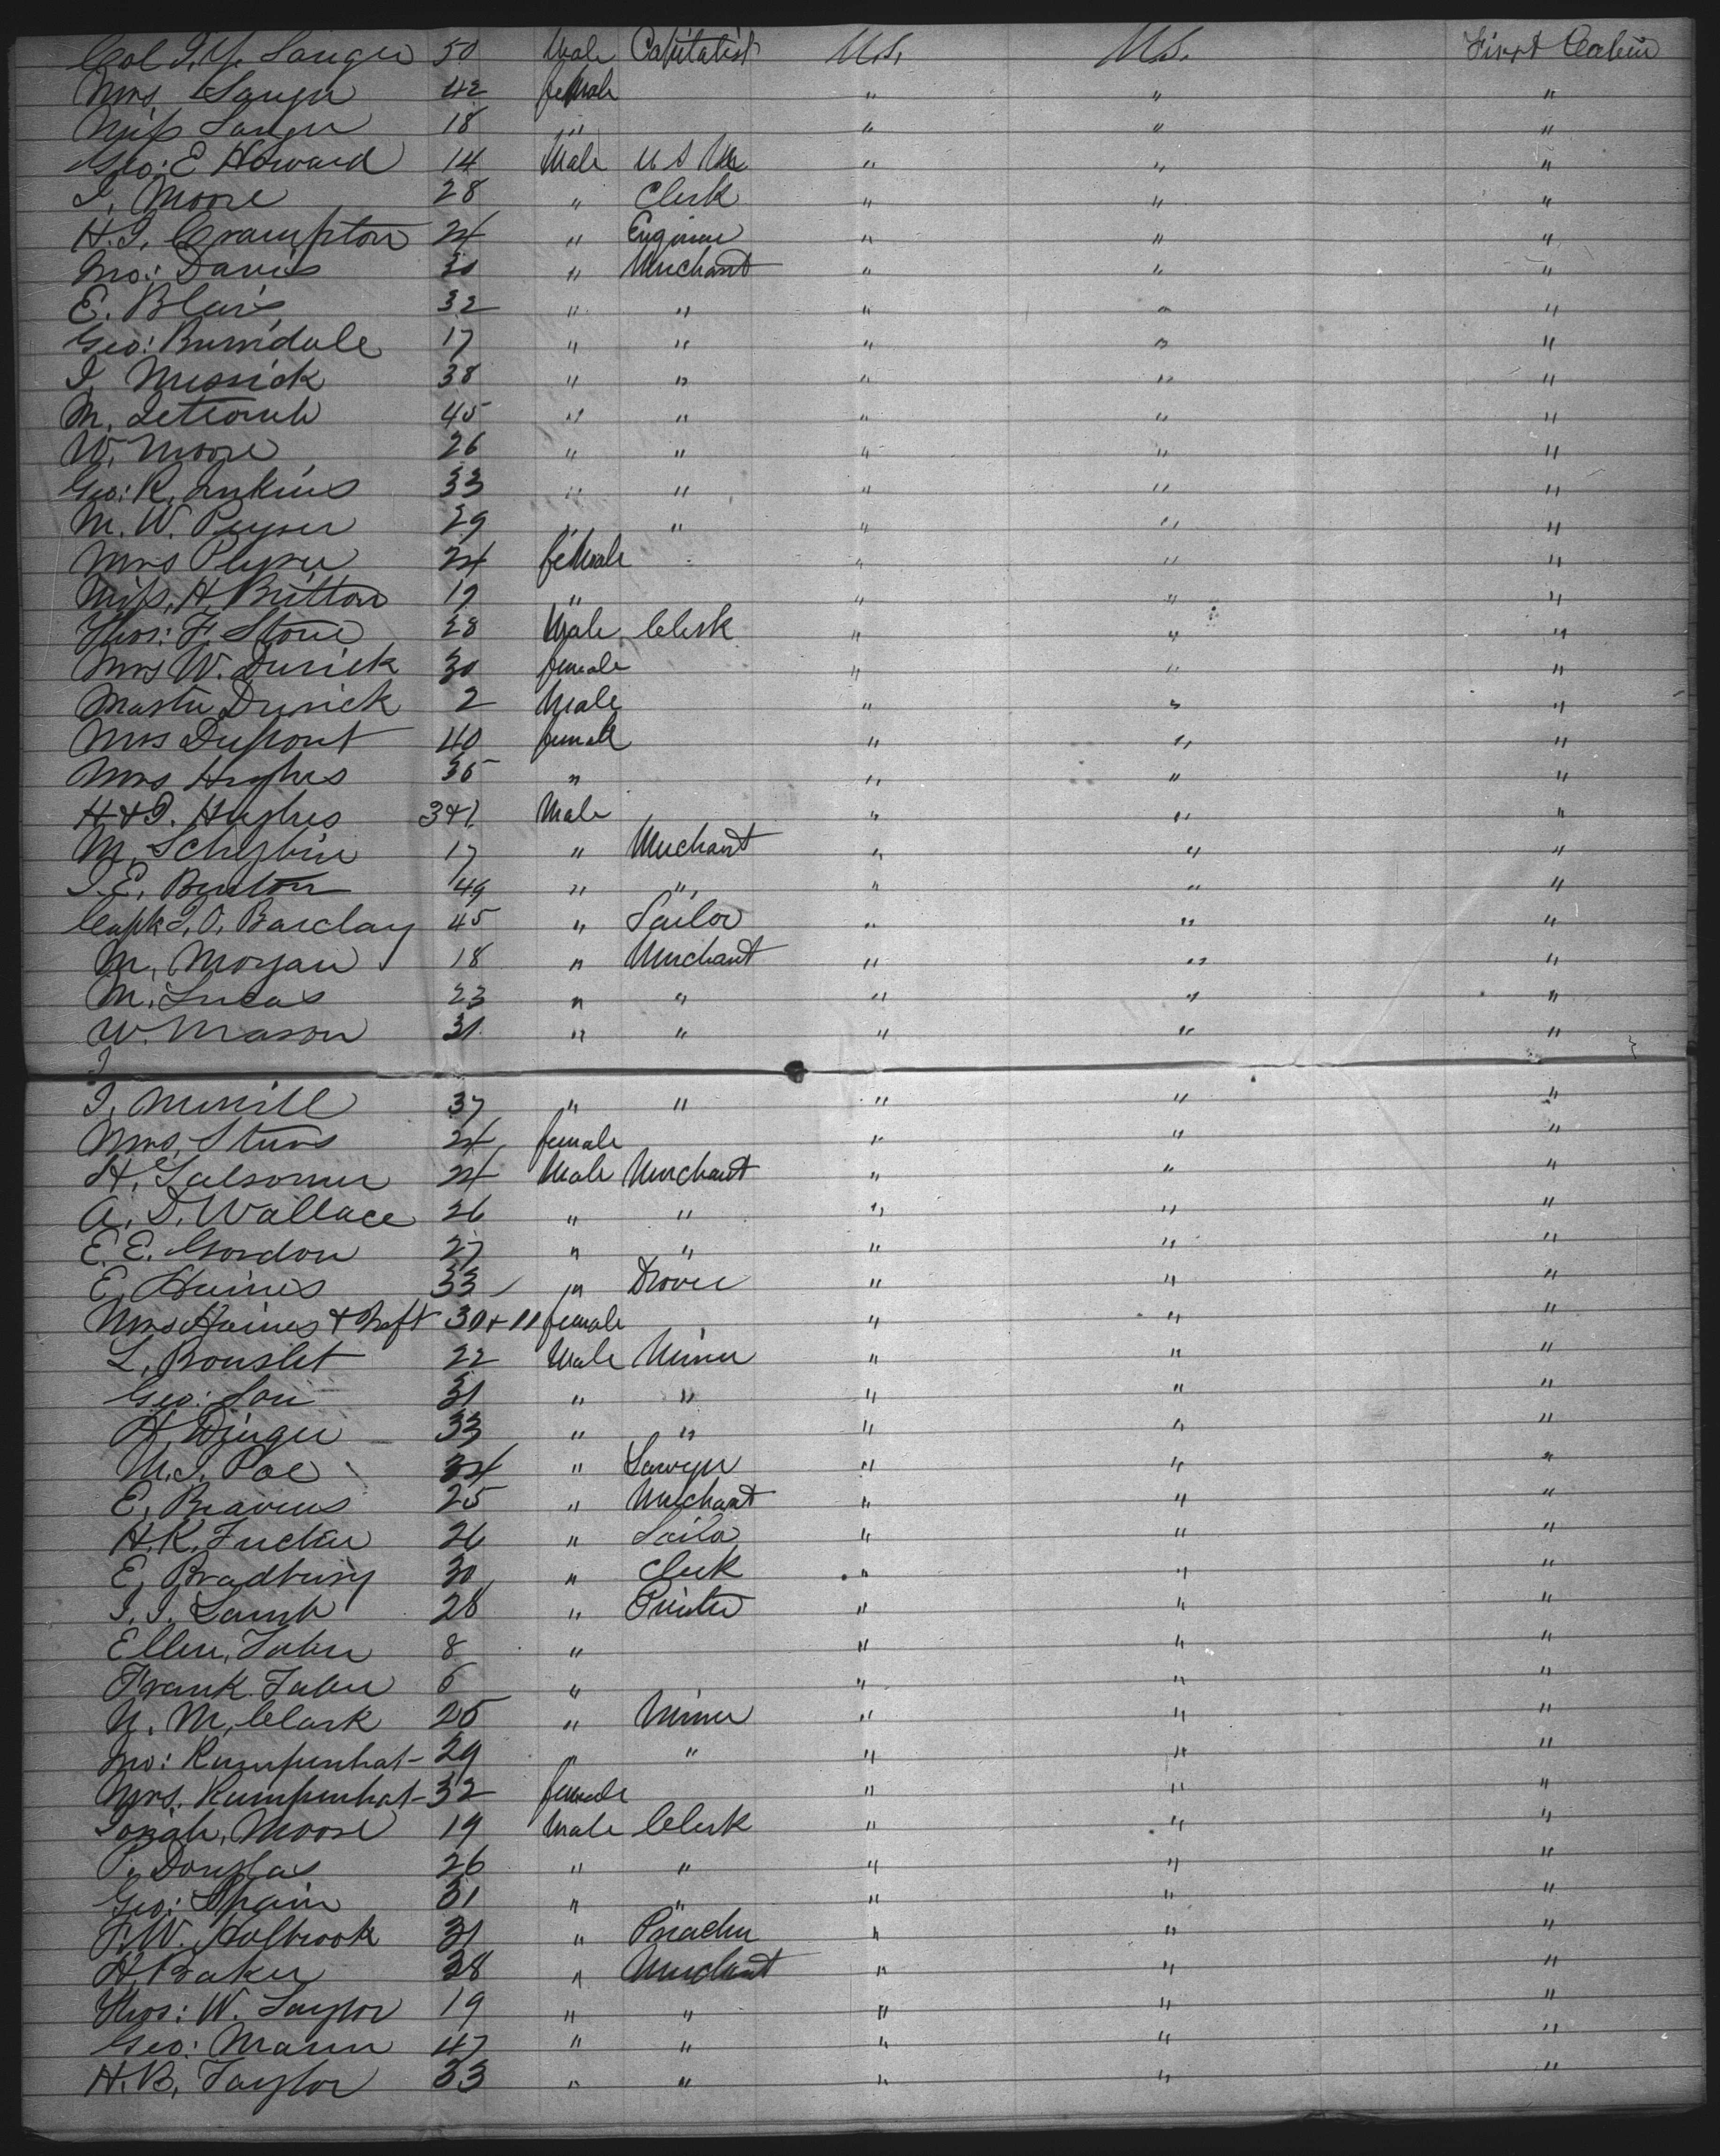 Col J. Y. Sanger 50 Male Capitalist U.S. U.S. First Cabin
Mrs. Sanger 42 female " " "
Miss Sanger 18 " " " "
Geo: E Howard 14 Male U S " " "
J. Moore 28 " Clerk " " "
H. J. Crampton 24 " Engineer " " "
Jno: Davis 30 " Merchant " " "
E. Blair 32 " " " " "
Geo: 17 " " " " "
J. Messick 38 " " " " "
M. 45 " " " " "
W. Moore 26 " " " " "
Geo: R. Jenkins 33 " " " " "
M. W. Peyser 29 " " " " "
Mrs Peyser 24 female " " "
Miss. H. Britton 19 " " " "
Thos: F. Stone 28 Male Clerk " " "
Mrs W. Durick 30 female " " "
Master Durick 2 Male " " "
Mrs Dupont 40 female " " "
Mrs Hughes 35 " " " "
H & J. Hughes 3 & 1 Male " " "
M. 17 " Merchant " " "
J. E. Benton 49 " " " " "
Capt J. O. Barclay 45 " Sailor " " "
M. Morgan 18 " Merchant " " "
M. Lucas 23 " " " " "
W. Mason 31 " " " " "
J
J. Merrill 37 " " " " "
Mrs. 24 female " " "
H. 24 Male Merchant " " "
A. D. Wallace 26 " " " " "
E. E. Gordon 27 " " " " "
E. Haines 33 " Drover " " "
Mrs Haines & 30 + 11 female " " "
L. 22 Male Miner " " "
Geo: 31 " " " " "
H. 33 " " " " "
M. J. Poe 34 " Lawyer " " "
E. 25 " Merchant " " "
H. K. Tucker 26 " Sailor " " "
E. Bradbury 30 " Clerk " " "
J. J. 28 " Printer " " "
Ellen, Taber 8 " " " "
Frank Taber 6 " " " "
N. M. Clark 25 " Miner " " "
Jno: Rumpenhat 29 " " " " "
Mrs. Rumpenhat 32 female " " "
Moore 19 Male Clerk " " "
P. Douglas 26 " " " " "
Geo: Spain 31 " " " " "
F. W. Holbrook 31 " Preacher " " "
H. Baker 38 " Merchant " " "
Thos: W. Taylor 19 " " " " "
Geo: Mann 47 " " " " "
H. B. Taylor 33 " " " " "